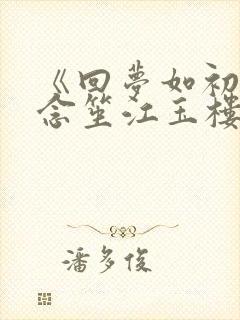 《回夢如初
念笙江玉樓
潘多俊